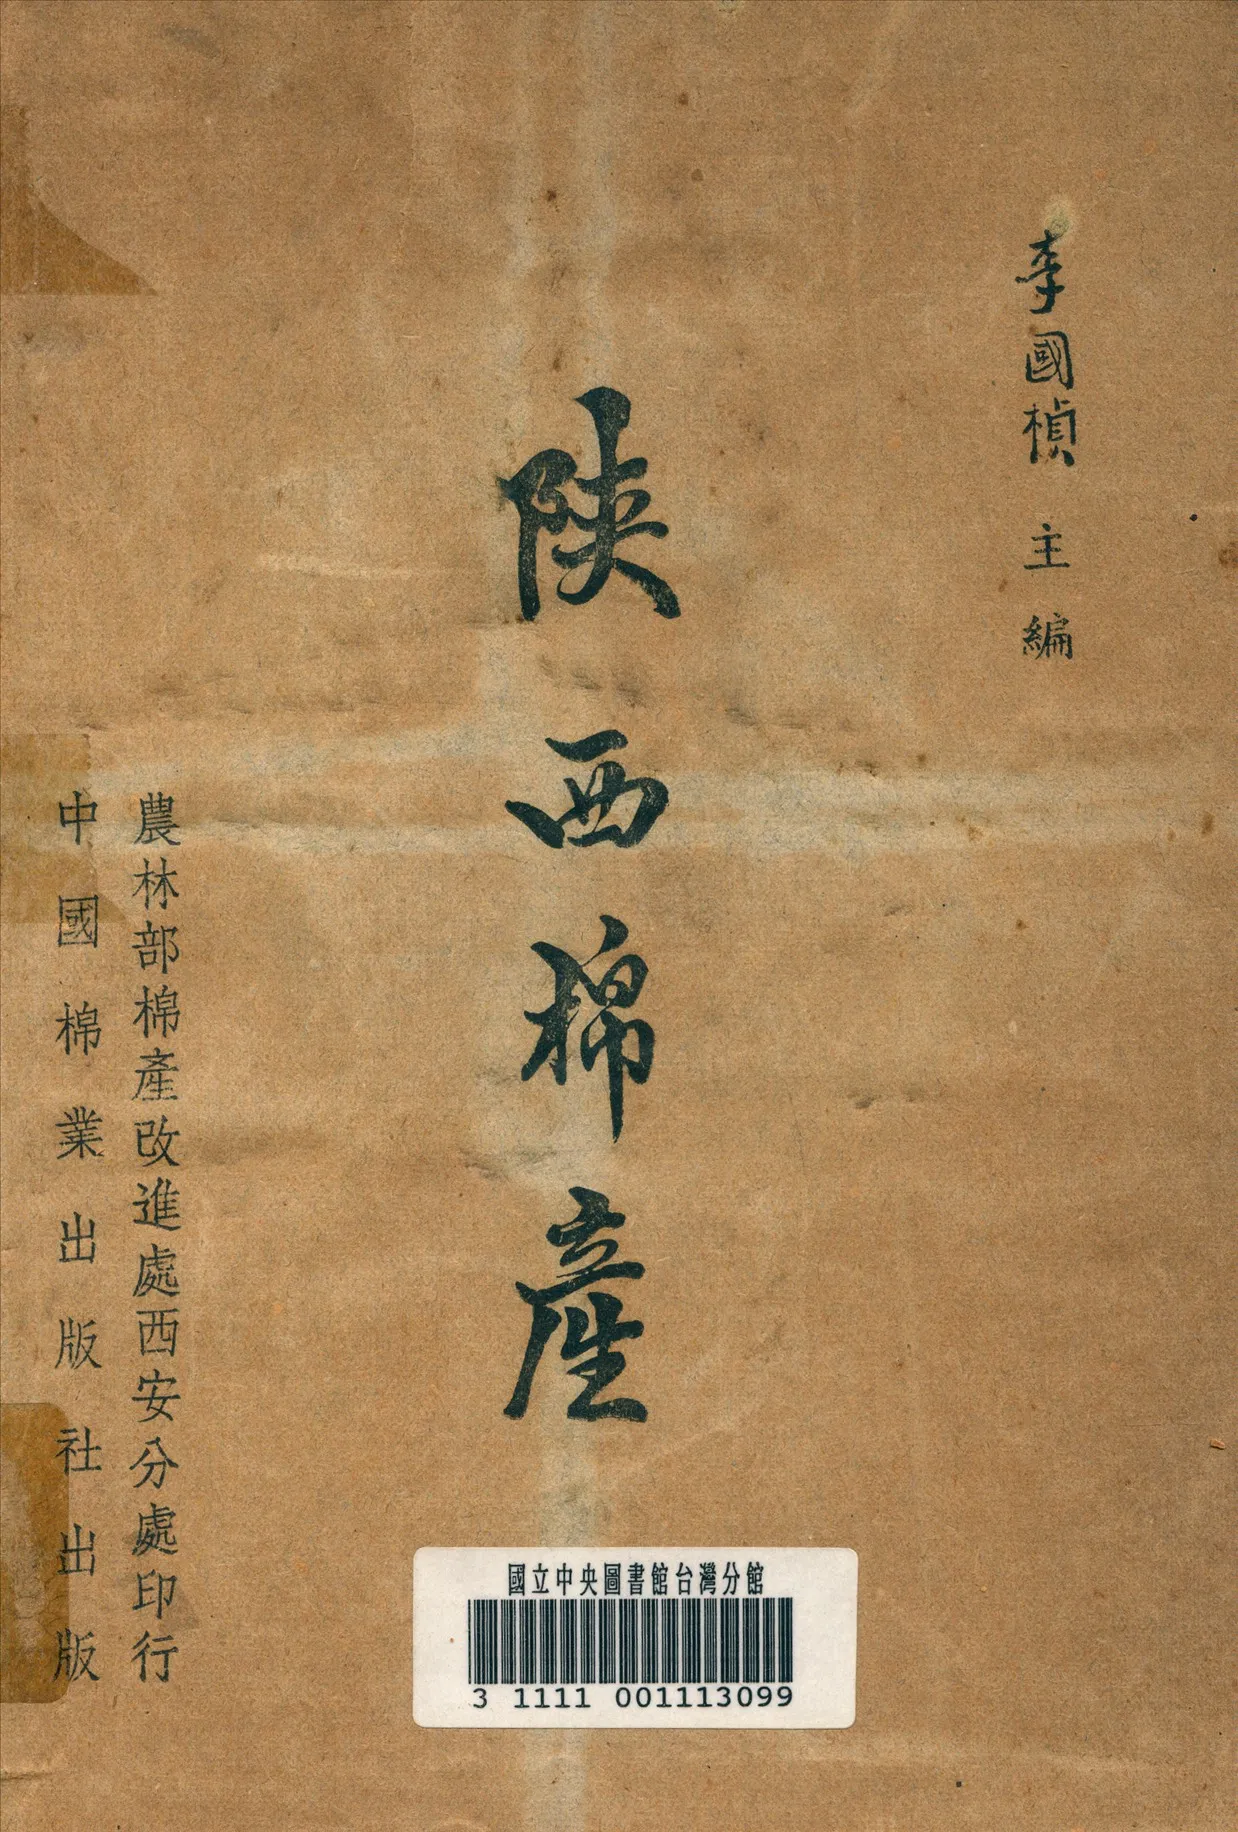 李國楨 主編
陝西棉產
農林部棉產改進處西安分處印行
中國棉業出版社出版
國立中央圖書館台灣分館
3 1111 001113099